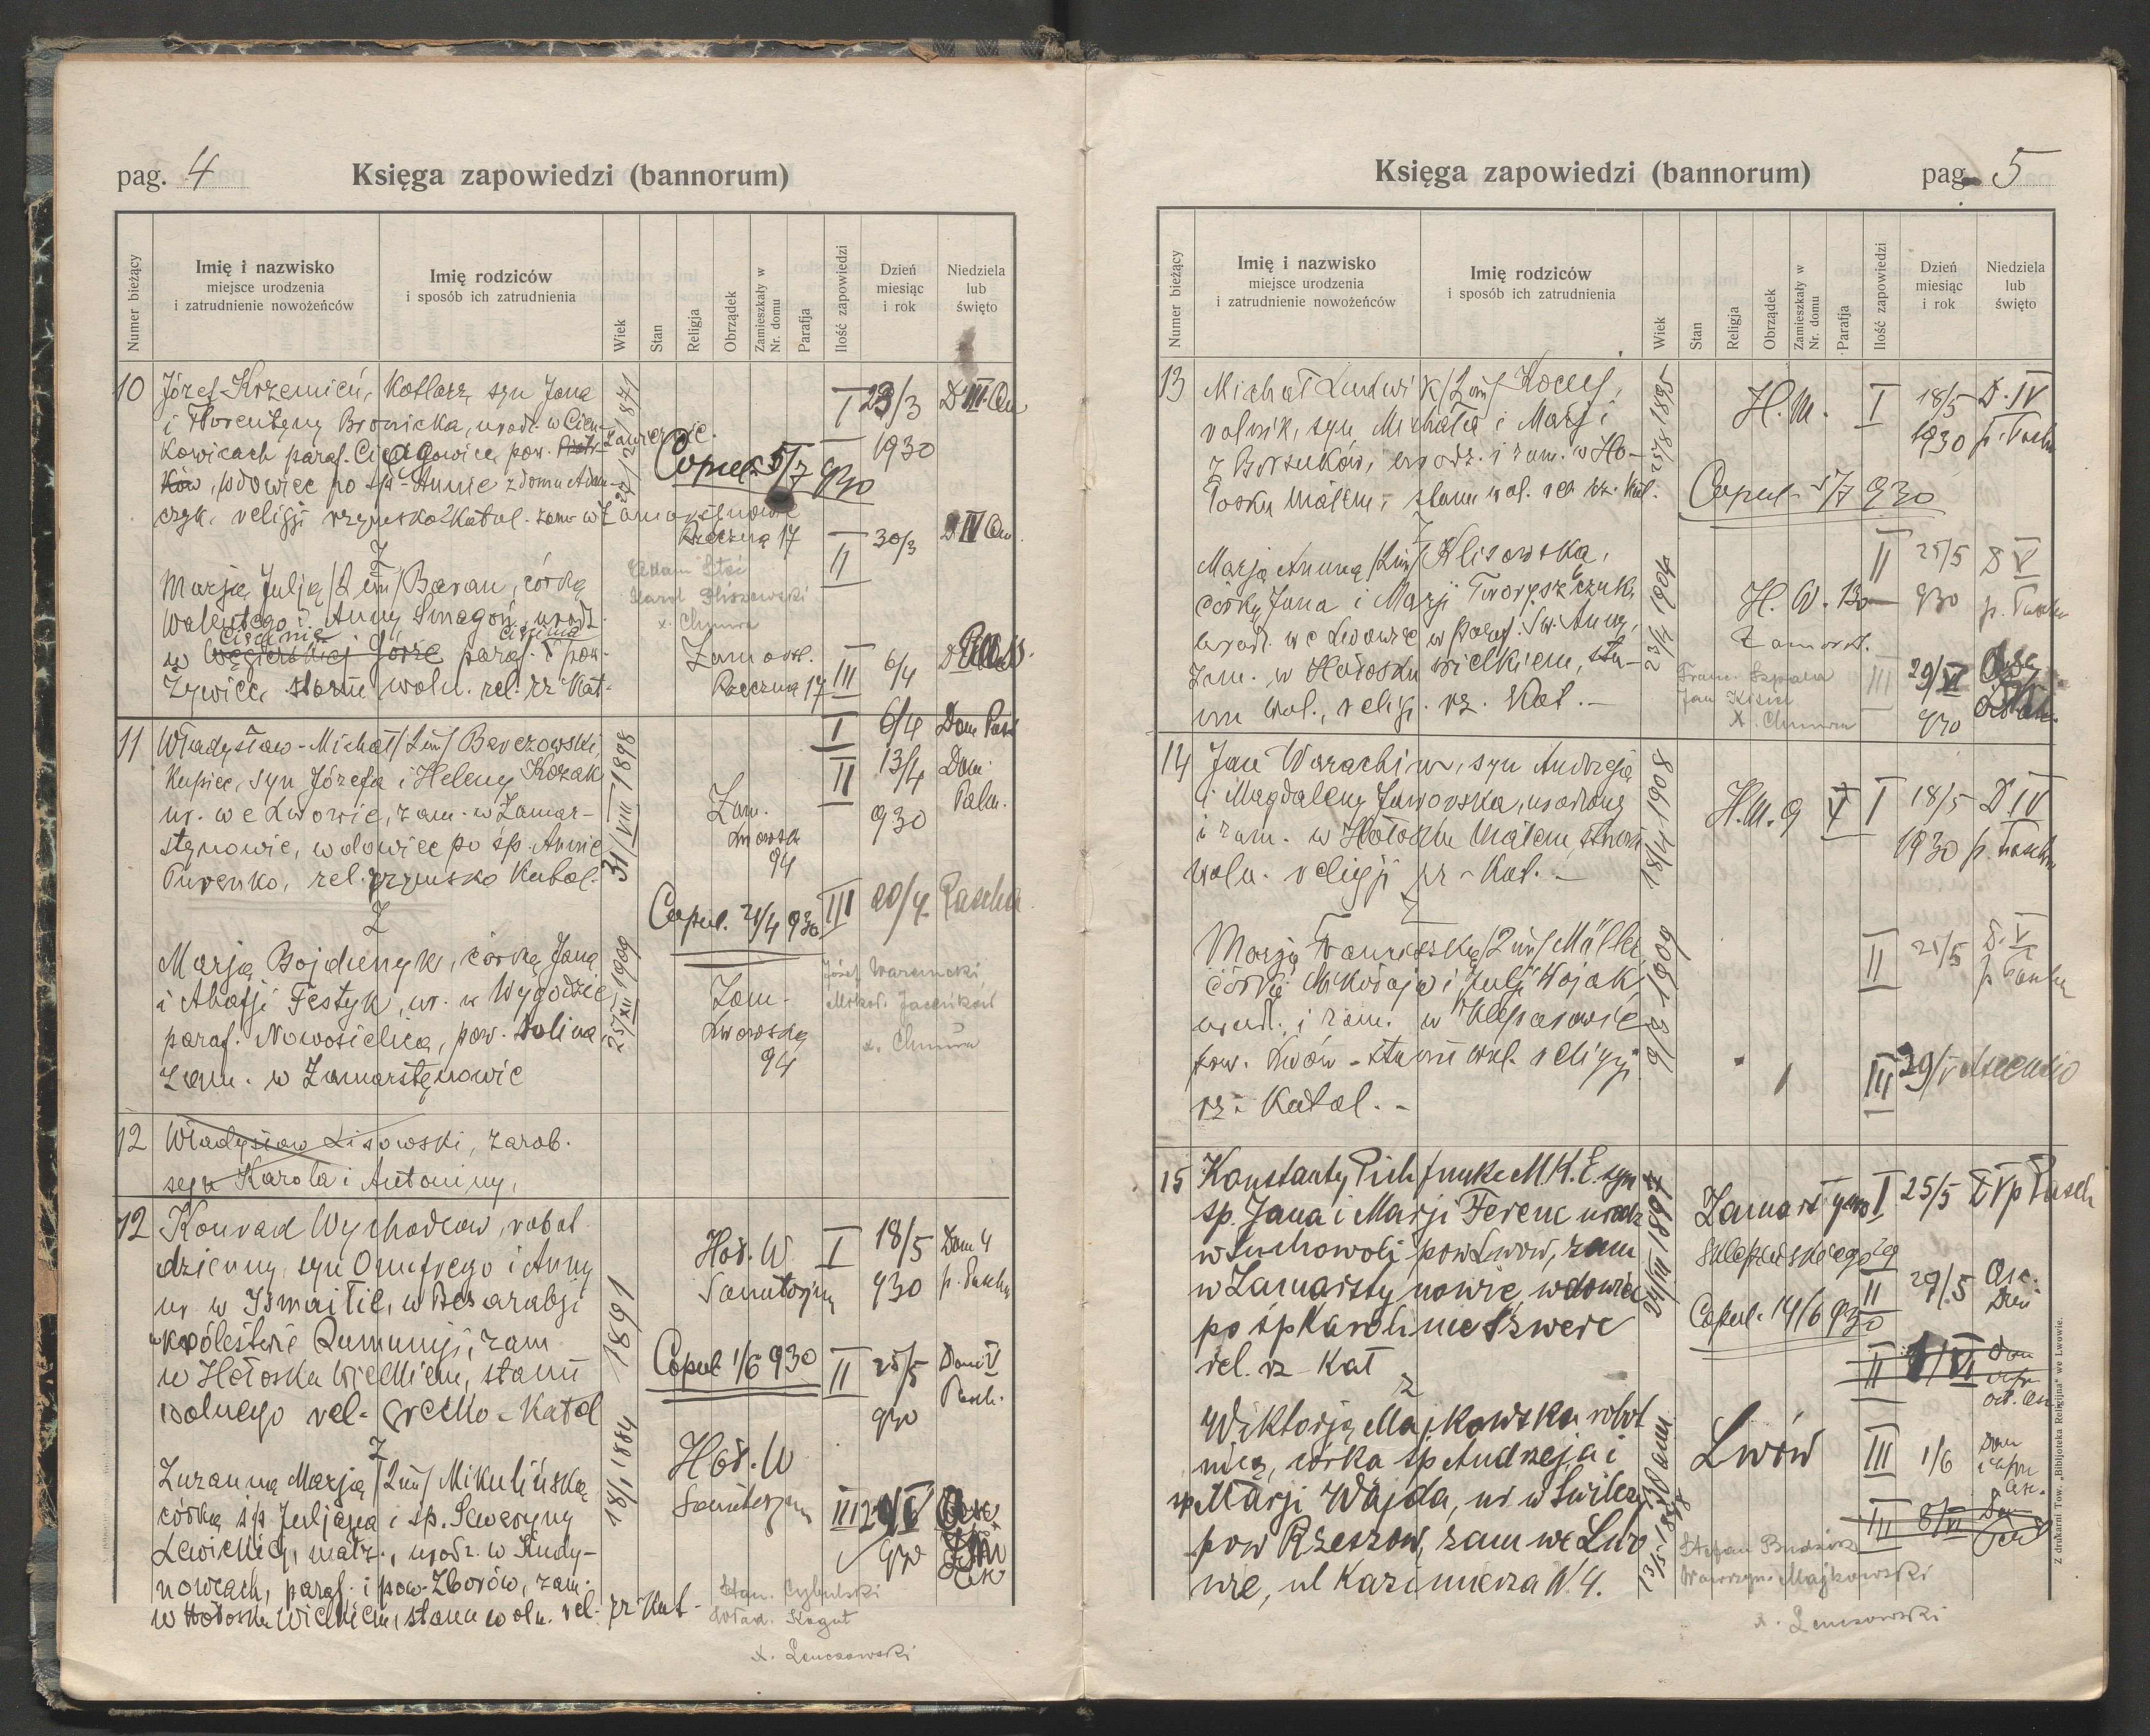 pag. 4
Księga zapowiedzi (bannorum)
Numer bieżący
Imię i nazwisko
miejsce urodzenia
i zatrudnienie nowożeńców
Imię rodziców
i sposób ich zatrudnienia
Wiek
Stan
Religja
Obrządek
Zamieszkały w
Nr. domu
Parafja
Ilość zapowiedzi
Dzień
miesiąc
i rok
Niedziela
lub
święto
10 Józef Krzemień, Kotlarz, syn Jana
i Florentyny Bronicka, urodz. w Cien-
kowicach paraf. pow.
wdowiec po śp. Annie z domu Adam-
czyk, religji rzymsko Katol. zam. w Zamarstynowie
Rzeczna 17
I 23/3
1930
Copul. 5/7 930
II 30/3
z
Marją Julją /2 im/ Baran, córką
Walentego i Anny Smagoń, urodz.
Cisienna
w Węgierskiej Górze paraf. i pow.
Żywiec, stanu woln. rel. rz Kat.
Adam
Karol
x. Chmura
Zamarst.
Rzeczna 17
III 6/4
11 Władysław-Michał /2 im/ Berezowski
Kupiec, syn Józefa i Heleny Kozak
ur. we Lwowie, zam. w Zamar-
stynowie, wdowiec po śp. Annie
Purenko, rel. rzymsko Katol.
31/VIII 1898
Zam.
Lwowska
94
I 6/4 Dom Pass
II 13/4 Dom.
Palm.
930
Copul. 21/4 930 III 20/4 Pascha
z
Marją Bojdunyk, córką Jana
i Ahafji Festyk, ur. w Wygodzie
paraf. Nowosielica, pow. Dolina
zam. w Zamarstynowie
25/XII 1909
Zam.
Lwowska
94
Józef Warenicki
x. Chmura
12 Władysław Lisowski, zarob.
syn Karola i Antoniny,
12 Konrad Wychodcow, robot.
dzienny, syn Onufrego i Anny
ur. w Ismaiłie, w Besarabji
królestwie Rumunji, zam
w Hołosku Wielkiem, stanu
wolnego rel. grecko-Katol
1891
Hoł. W.
Sanatorjum
I 18/5 Dom 4
930 p. Pascha
Copul 1/6 930 II 25/5 Dom V
930 Pasch.
z
Zuzanną Marją /2 im/ Mikulińską
córką śp. Juljana i śp. Seweryny
Lewickiej, małż., urodz. w Kudy-
nowcach, paraf. i pow. Zborów, zam.
w Hołosku Wielkiem, stanu woln. rel. rz Kat.
18/1 1884
Hoł. W
Sanatorjum
III 29/V
930
Stan. Cybulski
Wład. Kogut
x. Lenczowski
Księga zapowiedzi (bannorum)
pag. 5
Numer bieżący
Imię i nazwisko
miejsce urodzenia
i zatrudnienie nowożeńców
Imię rodziców
i sposób ich zatrudnienia
Wiek
Stan
Religja
Obrządek
Zamieszkały w
Nr. domu
Parafja
Ilość zapowiedzi
Dzień
miesiąc
i rok
Niedziela
lub
święto
13 Michał Ludwik /2 im/
rolnik, syn Michała i Marji
z Borsuków, urodz. i zam. w Ho-
łosku Małem, stanu wol. rel. rz. Kat.
1895
H. M.
I 18/5 D. IV
1930 p. Pascha
Copul. 5/7 930
z
Marją Anną /2 im/ Klisowską,
córką Jana i Marji
urodz. we Lwowie w paraf. Św. Anny,
zam. w Hołosku wielkiem, sta-
nu wol., religji rz. Kat.
23/1 1904
H. W. 130
Zamarst.
II 25/5 D V
930 p. Pascha
Franc. Szpala
Jan
x. Chmura
III 29/VI
930
14 Jan Warachim, syn Andrzeja
i Magdaleny Jaworska, urodzony
i zam. w Hołosku Małem, stanu
woln. religji rz-Kat.
18/4 1908
H. M. 9
I 18/5 D IV
1930 p. Pascha
z
Marją Franciszką /2 im/ Müller
córką Mikołaja i Julji Wojak
urodz. i zam. w Kleparowie
pow. Lwów-stanu wol. religji
rz. Katol.
1909
II 25/5 D. V
p. Pascha
III 29/V Ascensio
15 Konstanty Pich funkc M.K.E. syn
śp. Jana i Marji Ferenc urodz
w Suchowoli pow Lwow, zam
w Zamarstynowie, wdowiec
po śp Karolinie Szwerc
rel. rz Kat
24/III 1897
Zamarstynow I 25/5 D V p Pasch
29
II 29/5 Asc.
Dni
Copul. 14/6 930
II 1/VI Dom
z
Wiktorją Majkowska robot
nicą, córka śp Andrzeja i
śp Marji Wajda, ur. w Świlczy
pow Rzeszow, zam we Lwo
wie, ul Kazimierza N. 4.
Lwów
III 1/6 Dom
III 8/VI
Stefan
Wawrzyn. Majkowski
x. Lenczowski
Z drukarni Tow. „Bibljoteka Religijna“ we Lwowie.